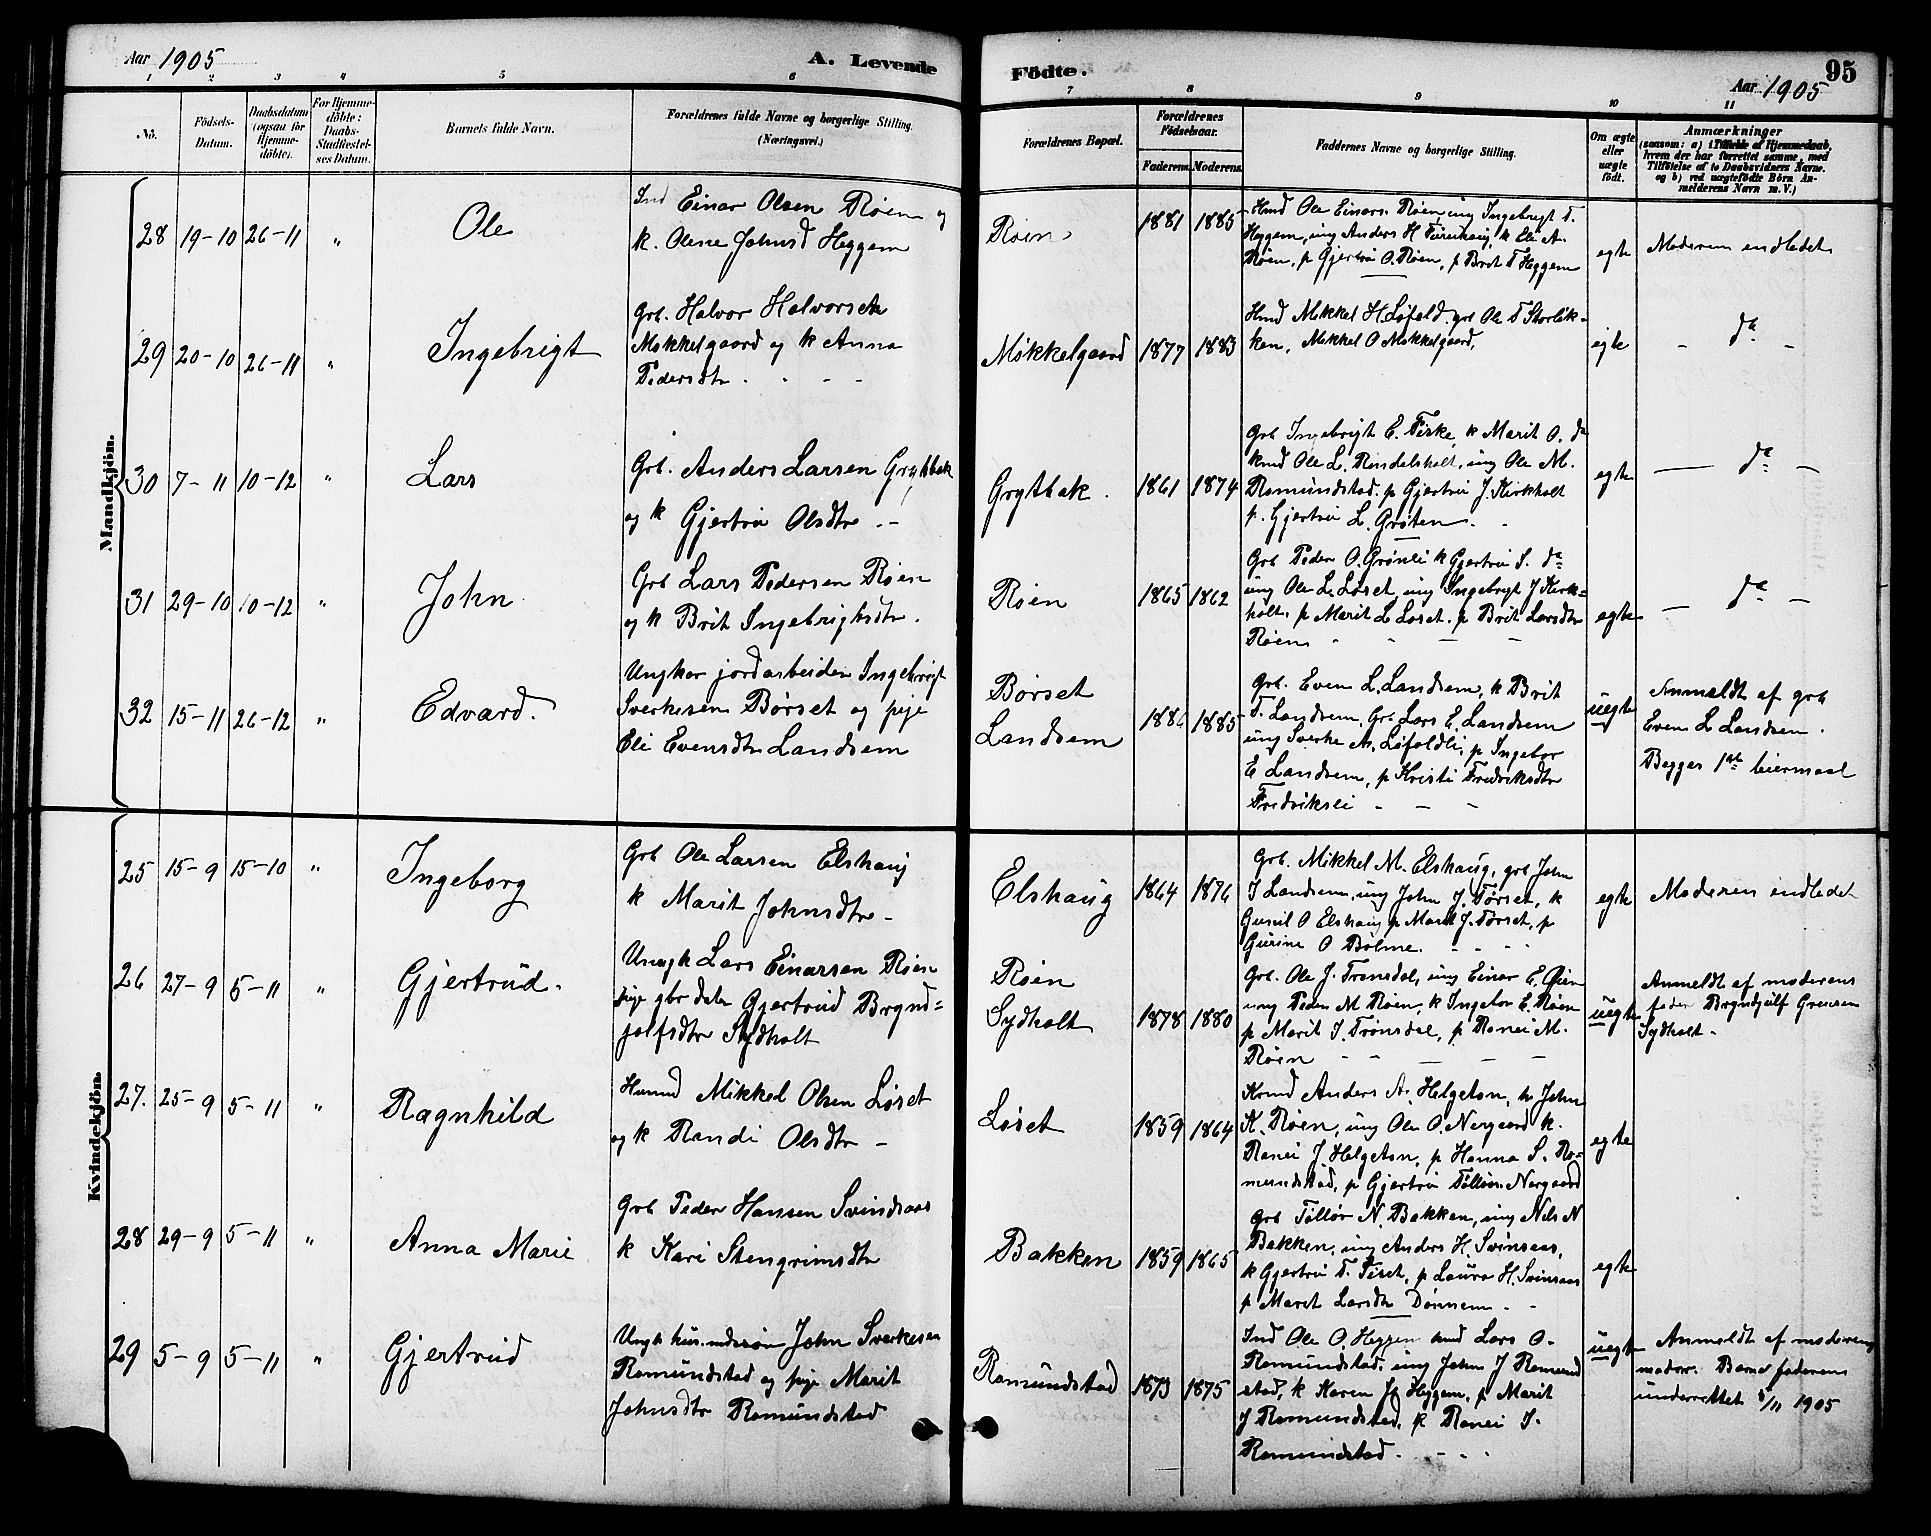 Aar 1905
A. Levende
Födte.
95
Aar 1905
1 2 3 4 5 6 7 8 9 10 11
No.
Födsels-
Datum.
Daabsdatum
(ogsaa for
Hjemme-
döbte).
For Hjemme-
döbte:
Daabs-
Stadfæstel-
ses Datum.
Barnets fulde Navn.
Forældrenes fulde Navne og borgerlige Stilling.
(Næringsvei.)
Forældrenes Bopæl.
Forældrenes
Födselsaar.
Faderens. Moderens.
Faddernes Navne og borgerlige Stilling.
Om ægte
eller
uægte
födt.
Anmærkninger
(saasom: a) i Tilfælde af Hjemmedaab,
hvem der har forrettet samme, med
Tilföielse af to Daabsvidners Navne.
og b) ved uægtefödte Börn An-
melderens Navn m. V.)
Mandkjön.
28 19-10 26-11 "
Ole
Ind Einar Olsen Røen og
k. Olene Johnsd Heggem
Røen
1881 1885
Kmd Ole Einars. Røen, ung Ingebrigt T.
Heggem, ung Anders H Furuhaug, k Eli A.
Røen, p Gjertrú O. Røen, p Brit T Heggem
egte
Moderen indledet
29 20-10 26-11 "
Ingebrigt
Grb. Halvor Halvorsen
Mokkelgaard og k Anna
Pedersdtr - - - -
Møkkelgaard
1877 1883
Kmd Mikkel H. Løfald, grb Ole T Storlik-
ken, Mikkel O Mokkelgaard,
egte
- da -
30 7-11 10-12 "
Lars
Grb. Anders Larsen Grytbak
og k Gjertrú Olsdtr -
Grytbak.
1861 1874
Grb Ingebrigt E. Fiske, k Marit O. da
kmd Ole L. Rindalsholt, ung Ole M.
Romundstad. p Gjertrú J. Kirkholt
p. Gjertrú L. Grøten.
egte
- da -
31 29-10 10-12 "
John
Grb Lars Pedersen Røen
og k Brit Ingebrigtsdtr.
Røen
1865 1862
Grb Peder O. Grønli k Gjertrú S. da
ung Ole L Løset, ung Ingebrigt J Kirk=
holt. p Marit L Løset. p Brit Larsdtr
Røen - - - -
egte
- da -
32 15-11 26-12 "
Edvard.
Ungkar jordarbeider Ingebrigt
Sverkesen Børset og pige
Eli Evensdtr Landsem
Børset
Landsem
1885
Grb. Even L. Landsem, k Brit
T. Landsem, Grb Lars E. Landsem
ung Sverke M. Løfaldli, p Ingebor
E Landsem, p Kristi Fredriksdtr
Fredriksli - - -
uegte
Anmeldt af grb
Even L Landsem.
Begges 1ste leiermaal
Kvindekjön.
25 15-9 15-10 "
Ingeborg
Grb Ole Larsen Elshaug
k Marit Johnsdtr -
Elshaug
1864 1876
Grb. Mikkel M. Elshaug, grb John
I Landsem, ung John J. Tørset, k
Guril O Elshaug p Marit J. Tørset, p
Gúrine O Bolme. - - -
egte
Moderen indledet
26 27-9 5-11 "
Gjertrúd.
Ungk Lars Einarsen Røen
pige gbr datr Gjertrúd Brynd=
jolfsdtr Sydholt
Røen
Sydholt
1878 1880
Grb. Ole J. Tronsdal, ung Einar E. Øien
ung Peder M. Røen, k Ingebor E. Røen
p Marit J. Trønsdal, p Ranei M.
Røen - - - -
uegte
Anmeldt af moderens
fader Bryndjulf
Sydholt -
27. 25-9 5-11 "
Ragnhild
Husmd Mikkel Olsen Løset
og k Randi Olsdtr -
Løset
1859 1864
Kmd Anders A. Helgeton, k John
K. Røen, ung Ole O. Nergaard k.
Ranei J Helgeton, p Hanna S. Ro=
mundstad, p Gjertrú Nergaard
egte
28 29-9 5-11 "
Anna Marie
Grb Peder Hansen Svindsaas
k Kari Stengrimsdtr
Bakken
1859 1865
Grb Tølløv N. Bakken, ung Nils N
Bakken, ung Anders H. Svinsaas,
k Gjertrú T. Tiset, p Laura H. Svinsaas
p Maret Larsdtr Dønnem - -
egte
29 5-9 5-11 "
Gjertrúd
Ungk John Sverkesen
Romúndstad og pige Marit
Johnsdtr Romundstad
Romúndstad
1873 1875
Ind Ole O. Heggem kmd Lars O-
Romundstad, ung John J Romund
stad, k Karen Heggem, p Marit
J Romundstad, p Ranei I.
Romundstad. - - -
uegte
Anmeldt af moderens
moder. Barnefaderen
underrettet 5/11 1905